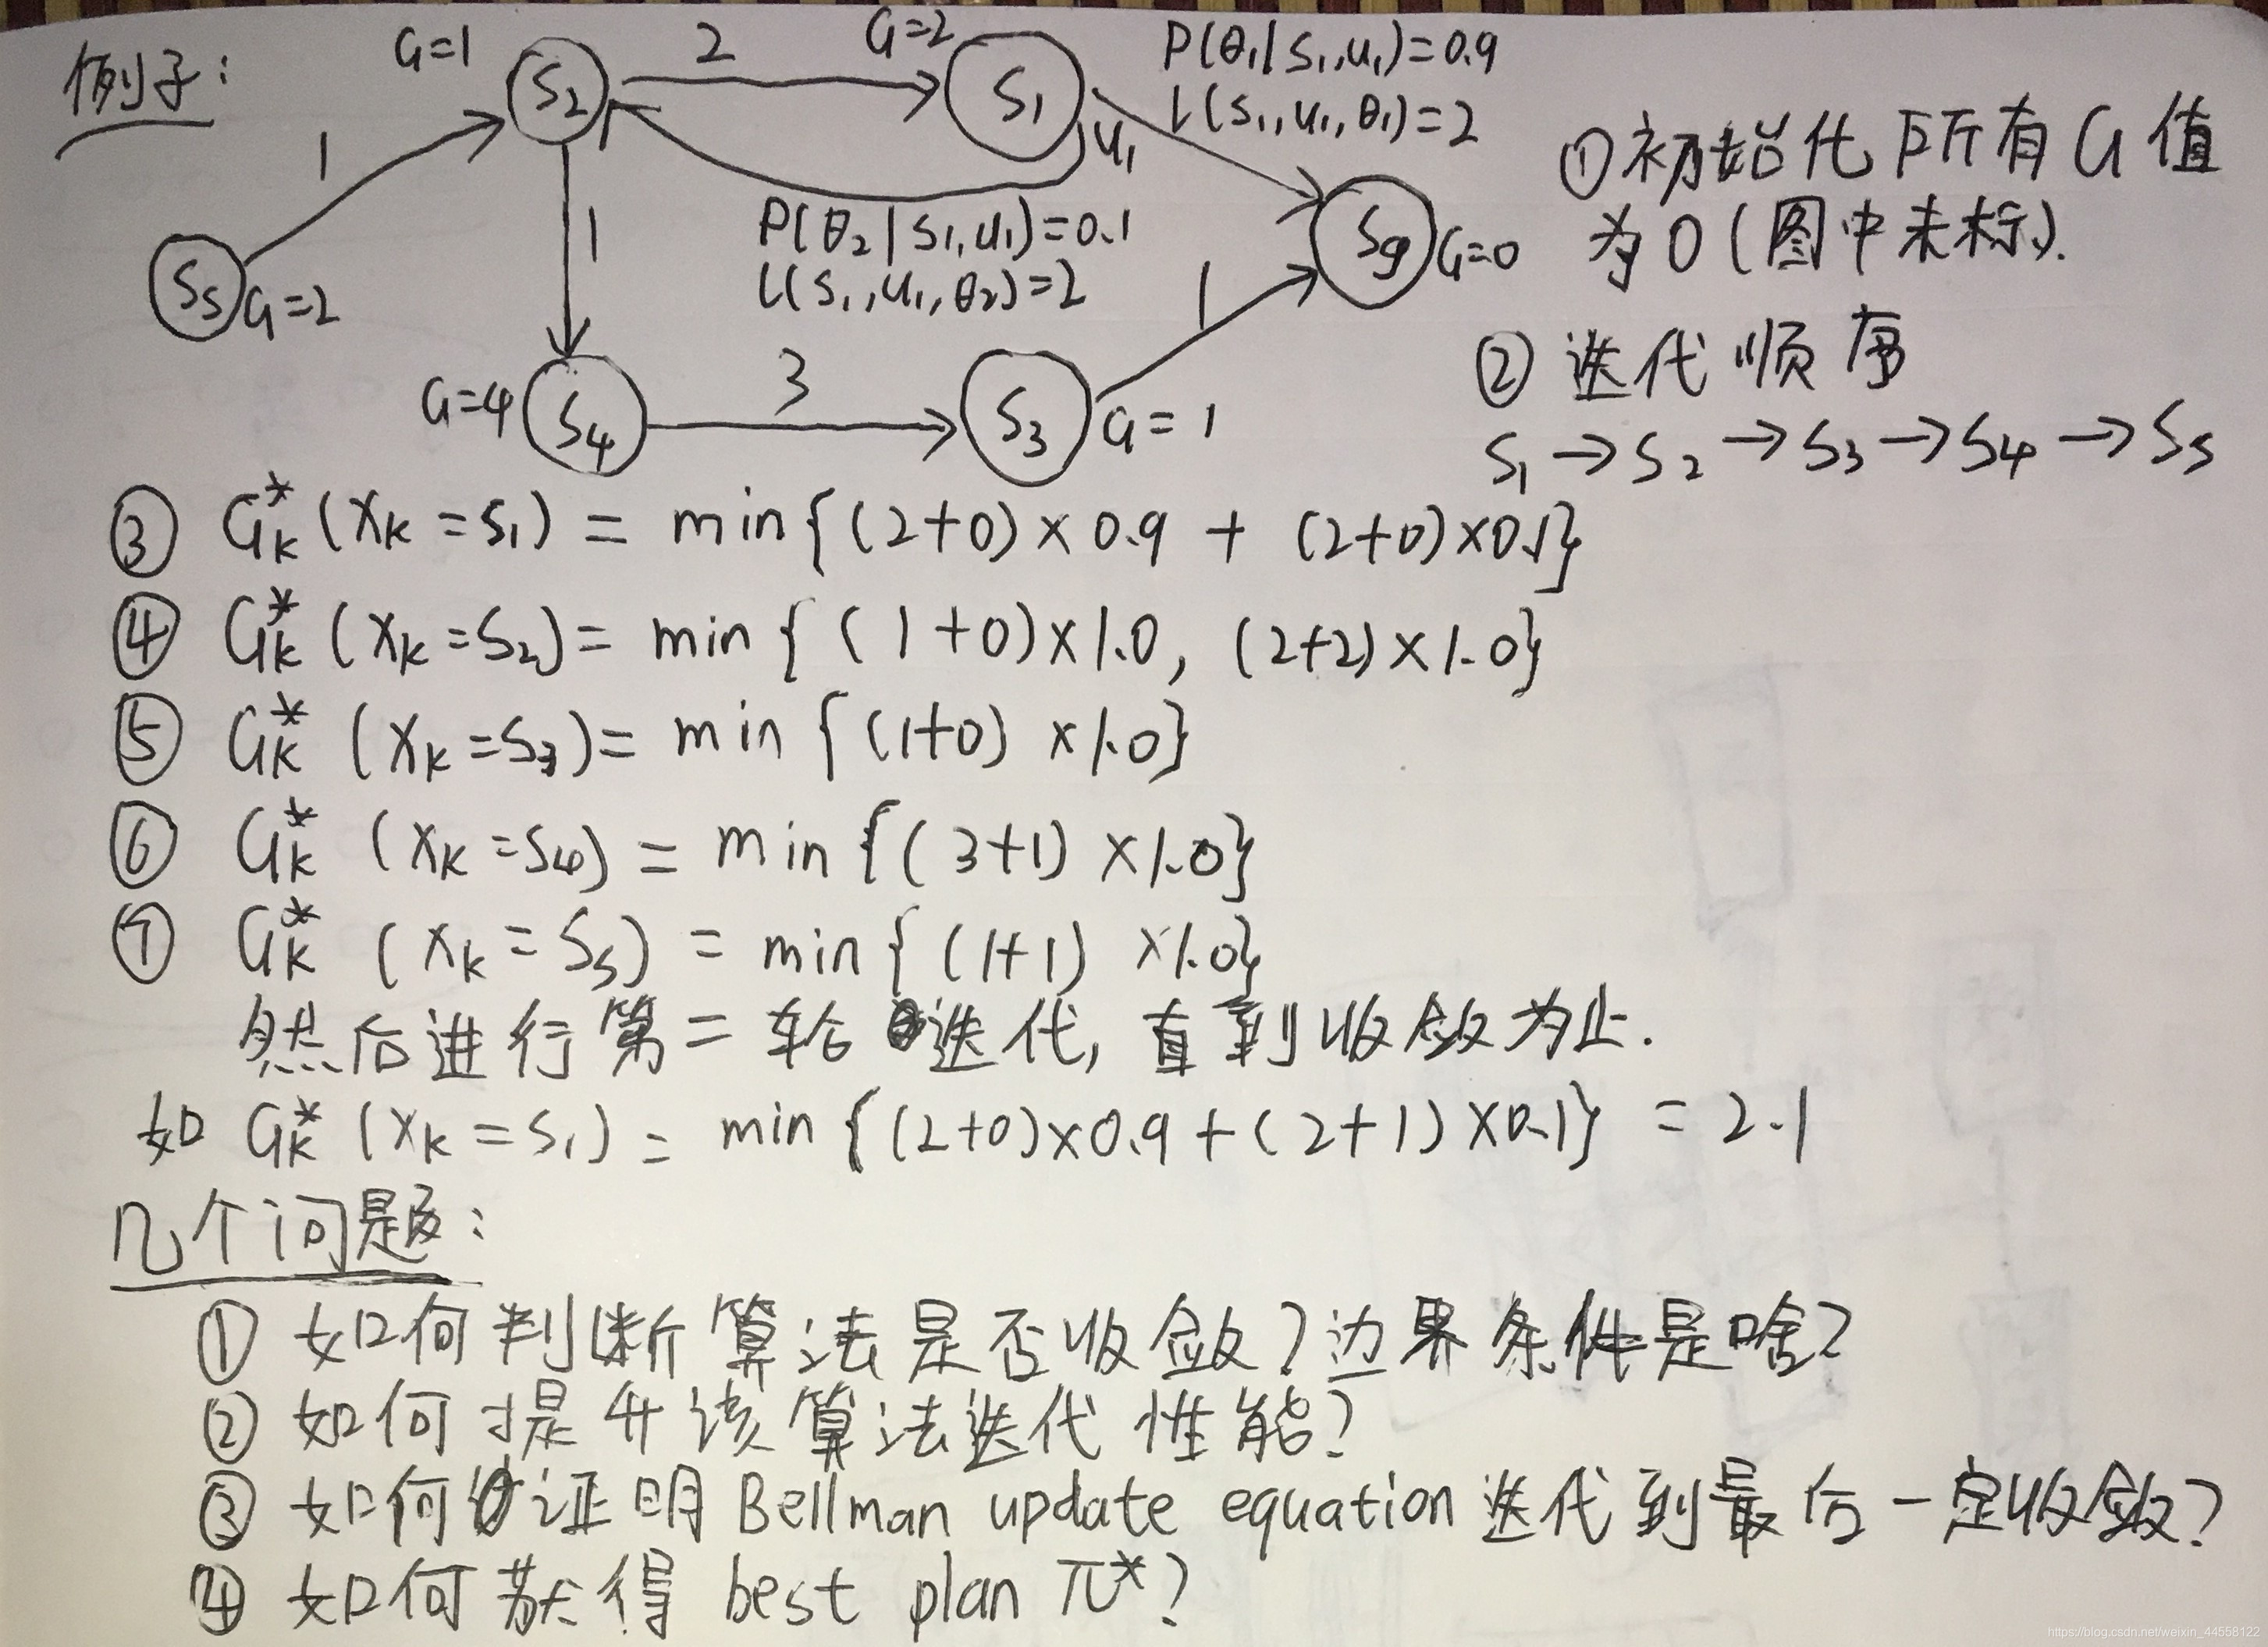 例子:
G=1
2
G=2
P(θ₁|s₁,u₁)=0.9
L(s₁,u₁,θ₁)=2
S₂
S₁
u₁
1
1
P(θ₂|s₁,u₁)=0.1
L(s₁,u₁,θ₂)=2
Sₛ
G=2
Sg
G=0
1
G=4
S₄
3
S₃
G=1
①初始化所有G值
为0(图中未标).
②迭代顺序
S₁→S₂→S₃→S₄→Sₛ
③ G*ₖ(xₖ=s₁) = min{(2+0)×0.9 + (2+0)×0.1}
④ G*ₖ(xₖ=S₂) = min{(1+0)×1.0, (2+2)×1.0}
⑤ G*ₖ(xₖ=S₃) = min{(1+0)×1.0}
⑥ G*ₖ(xₖ=S₄) = min{(3+1)×1.0}
⑦ G*ₖ(xₖ=Sₛ) = min{(1+1)×1.0}
然后进行第二轮迭代,直到收敛为止.
如 G*ₖ(xₖ=s₁) = min{(2+0)×0.9+(2+1)×0.1} = 2.1
几个问题:
① 如何判断算法是否收敛?边界条件是啥?
② 如何提升该算法迭代性能?
③ 如何证明Bellman update equation迭代到最后一定收敛?
④ 如何获得 best plan π*?
https://blog.csdn.net/weixin_44558122